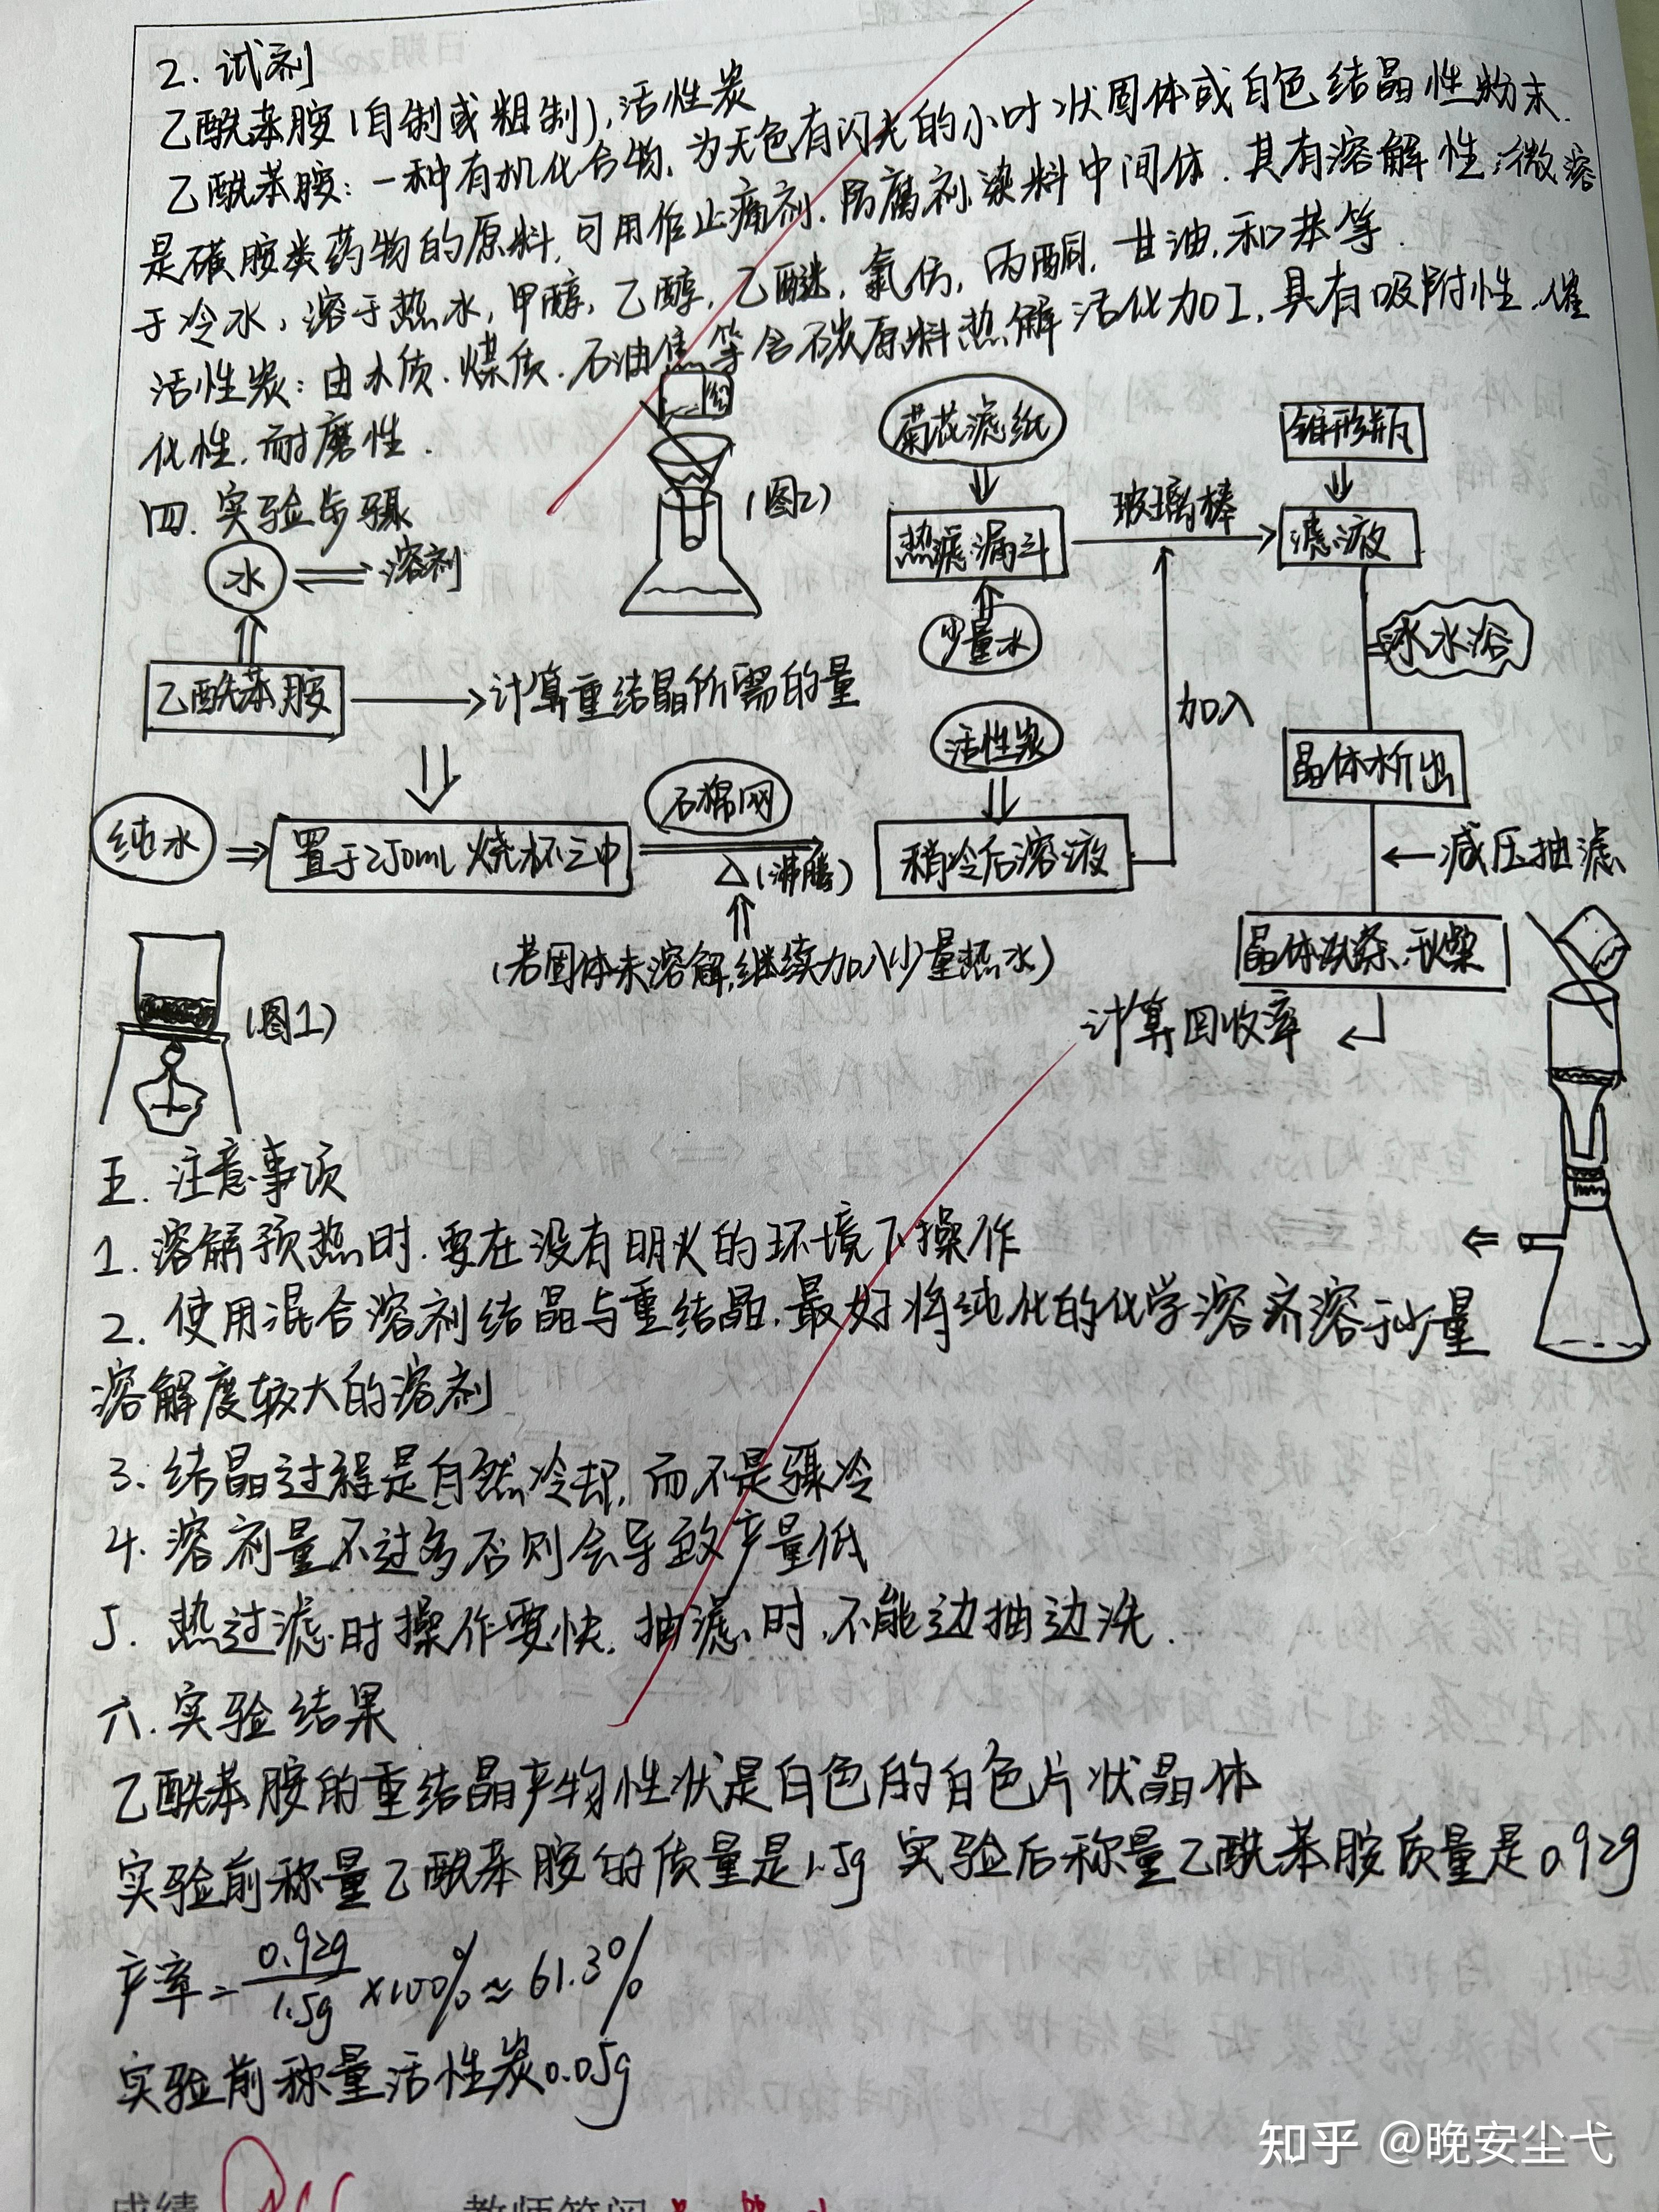 2. 试剂
乙酰苯胺(自制或粗制),活性炭
乙酰苯胺:一种有机化合物,为无色有闪光的小叶状固体或白色结晶性粉末.
是磺胺类药物的原料,可用作止痛剂.防腐剂.染料中间体.其有溶解性:微溶
于冷水,溶于热水,甲醇,乙醇,乙醚,氯仿,丙酮,甘油,和苯等.
活性炭:由木质.煤质.石油焦等含碳原料热解活化加工,具有吸附性.催
化性.耐磨性.
四.实验步骤
水
溶剂
乙酰苯胺
计算重结晶所需的量
纯水
置于250ml烧杯之中
石棉网
△(沸腾)
(若固体未溶解,继续加入少量热水)
(图1)
(图2)
菊花滤纸
热滤漏斗
少量水
活性炭
稍冷后溶液
加入
玻璃棒
锥形瓶
滤液
冰水浴
晶体析出
减压抽滤
计算回收率
五.注意事项
1.溶解预热时.要在没有明火的环境下操作
2.使用混合溶剂结晶与重结晶.最好将纯化的化学溶剂溶于少量
溶解度较大的溶剂
3.结晶过程是自然冷却,而不是骤冷
4.溶剂量不过多否则会导致产量低
5.热过滤时操作要快.抽滤时,不能边抽边洗.
六.实验结果
乙酰苯胺的重结晶产物性状是白色的白色片状晶体
实验前称量乙酰苯胺的质量是1.5g 实验后称量乙酰苯胺质量是0.92g
产率=0.92g/1.5g×100%≈61.3%
实验前称量活性炭0.05g
知乎 @晚安尘弋
成绩